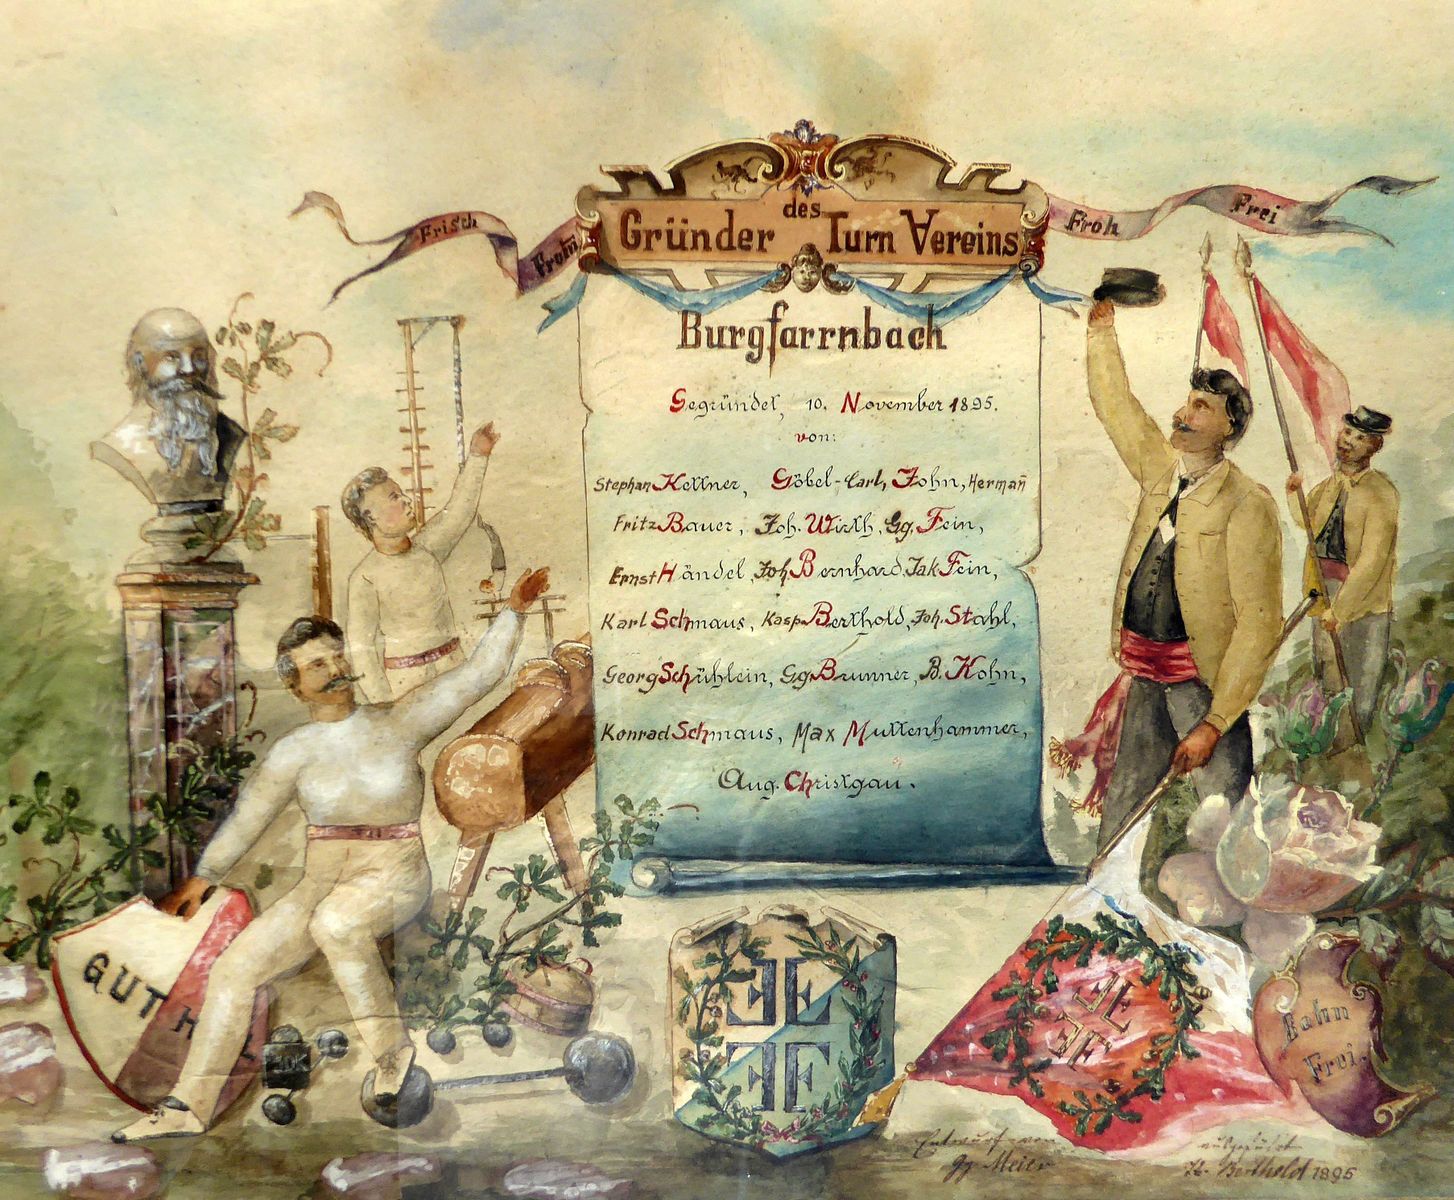 Frisch Fromm Froh Frei
Gründer des Turn Vereins
Burgfarrnbach
Gegründet, 10. November 1895.
von:
Stephan Kellner, Göbel-Carl, John, Hermañ
Fritz Bauer, Joh. Wirth, Gg. Fein,
Ernst Händel, Joh. Bernhard, Jak Fein,
Karl Schmaus, Kasp. Berthold, Joh. Stahl,
Georg Schühlein, Gg. Brunner, B. Kohn,
Konrad Schmaus, Max Muttenhammer,
Aug. Christgau.
GUT H
F F F F
F F F F
Bahn
Frei.
Entwurf von
Gg Meier
ausgeführt
Berthold 1895